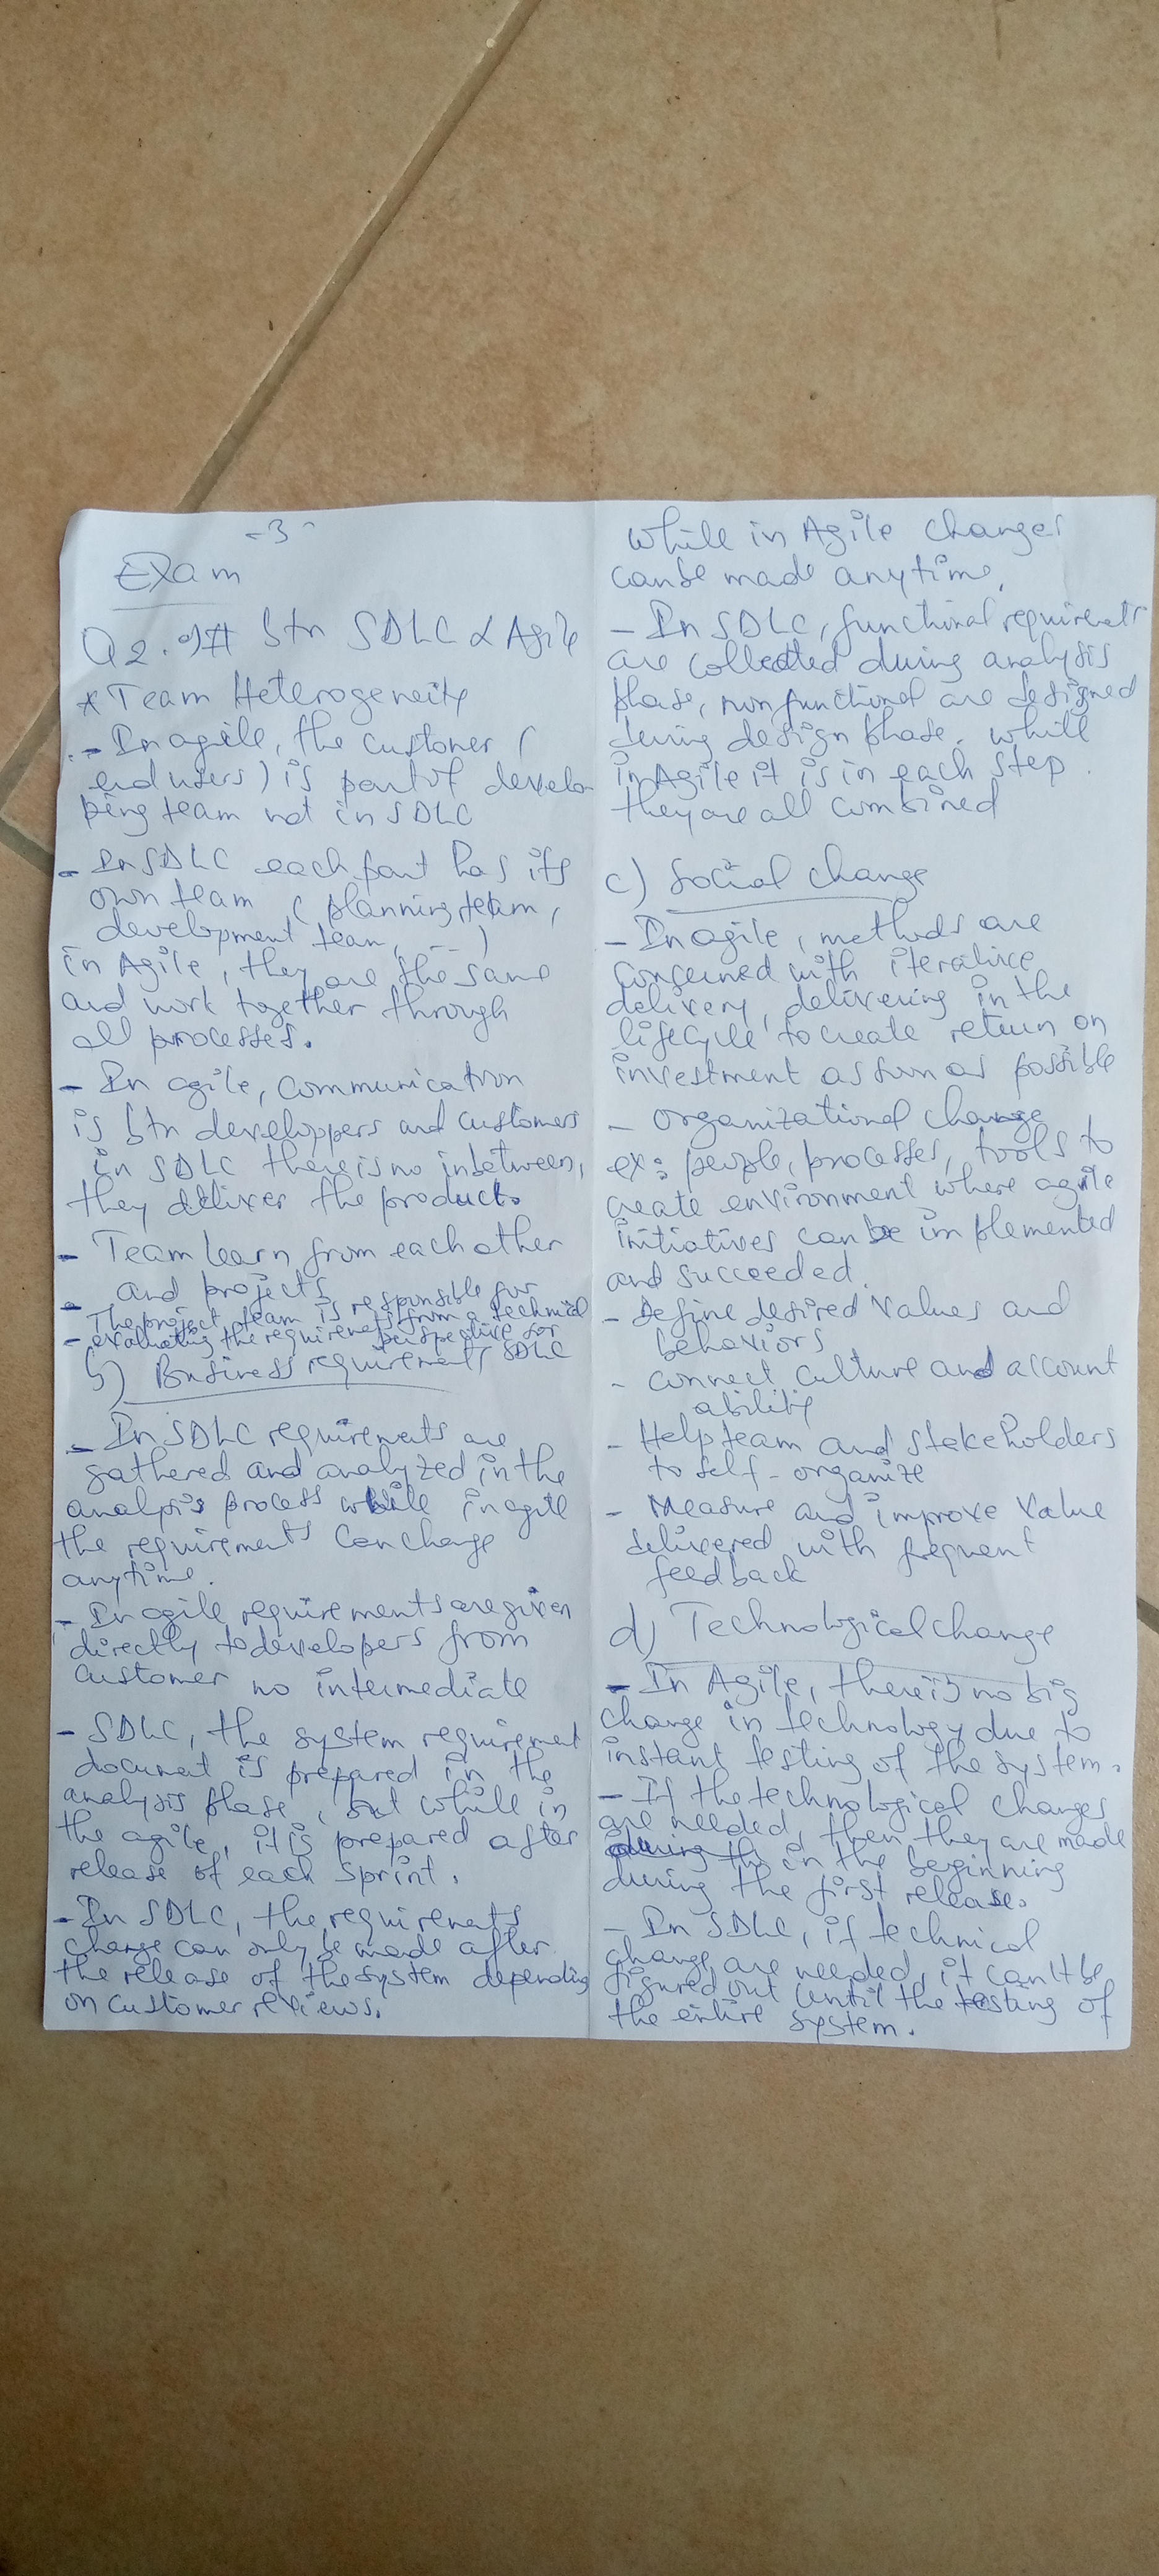 -3-
Exam
Q2. ≠ btn SDLC & Agile
* Team Heterogeneity
- In agile, the customer (
end users) is part of develo
ping team not in SDLC
- In SDLC each part has its
own team ( planning team,
development team, -- )
in Agile, they are the same
and work together through
all processes.
- In agile, communication
is btn developpers and customers
in SDLC there is no inbetween,
they deliver the product.
- Team learn from each other
and projects
- The project team is responsible for
- evaluating the requirements from a technical
perspective for
SDLC
b) Business requirements
- In SDLC requirements are
gathered and analyzed in the
analysis process while in agile
the requirements can change
anytime.
- In agile requirements are given
directly to developers from
customer no intermediate
- SDLC, the system requirement
document is prepared in the
analysis phase, but while in
the agile, it is prepared after
release of each sprint.
- In SDLC, the requirements
change can only be made after
the release of the system depending
on customer reviews.
while in Agile changes
can be made anytime.
- In SDLC, functional requirements
are collected during analysis
phase, non functional are designed
during design phase. while
in Agile it is in each step.
they are all combined
c) Social change
- In agile, methods are
concerned with iterative
delivery, delivering in the
lifecycle to create return on
investment as soon as possible
- organizational change
ex: people, processes, tools to
create environment where agile
initiatives can be implemented
and succeeded.
- Define desired values and
behaviors
- connect culture and account
ability
- Help team and stakeholders
to self-organize
- Measure and improve value
delivered with frequent
feedback
d) Technological change
- In Agile, there is no big
change in technology due to
instant testing of the system.
- If the technological changes
are needed, then they are made
in the beginning
during the first release.
- In SDLC, if technical
change are needed, it can't be
figured out until the testing of
the entire system.